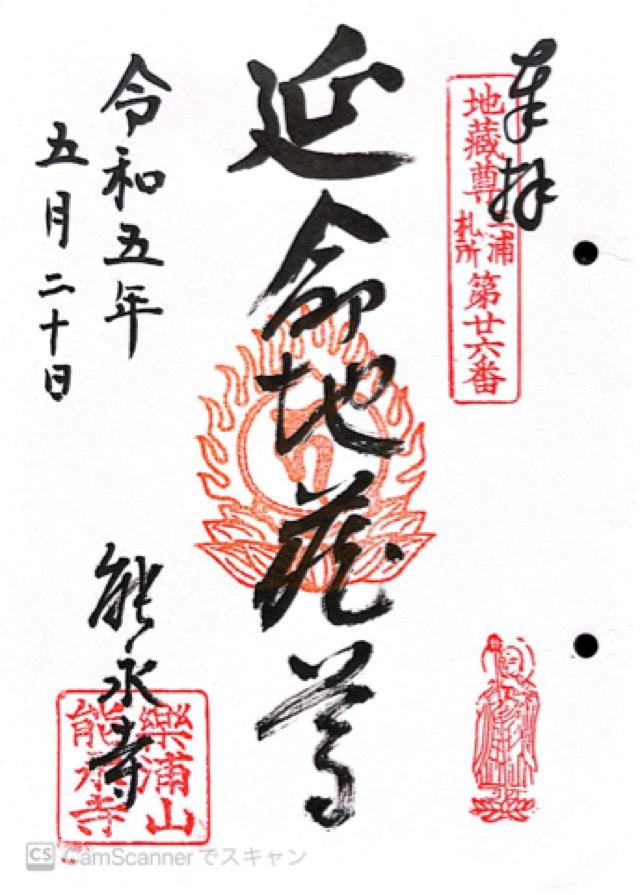 奉拝
地蔵尊三浦札所第廿六番
延命地蔵尊
令和五年
五月二十日
能永寺
樂浦山
能永寺
CS CamScannerでスキャン